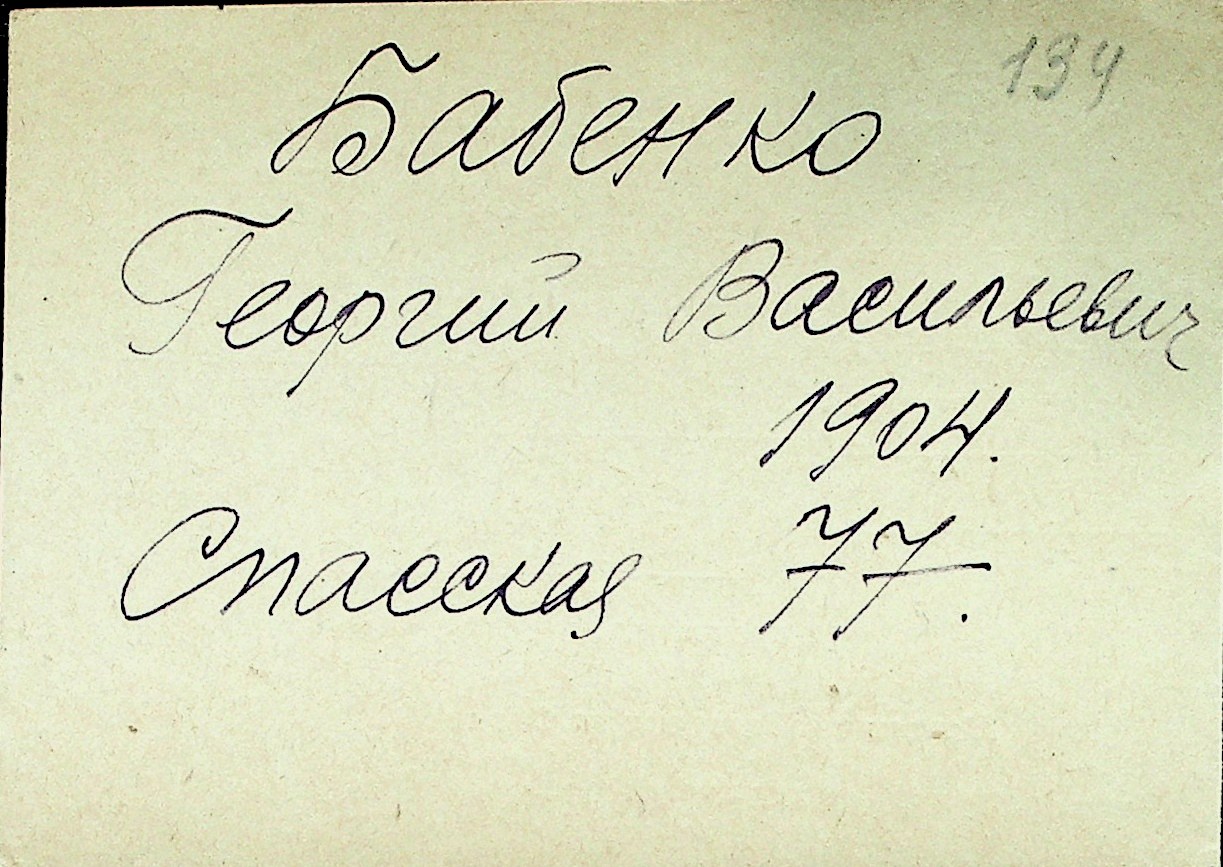 134
Бабенко
Георгий Васильевич
1904.
Спасская 77.